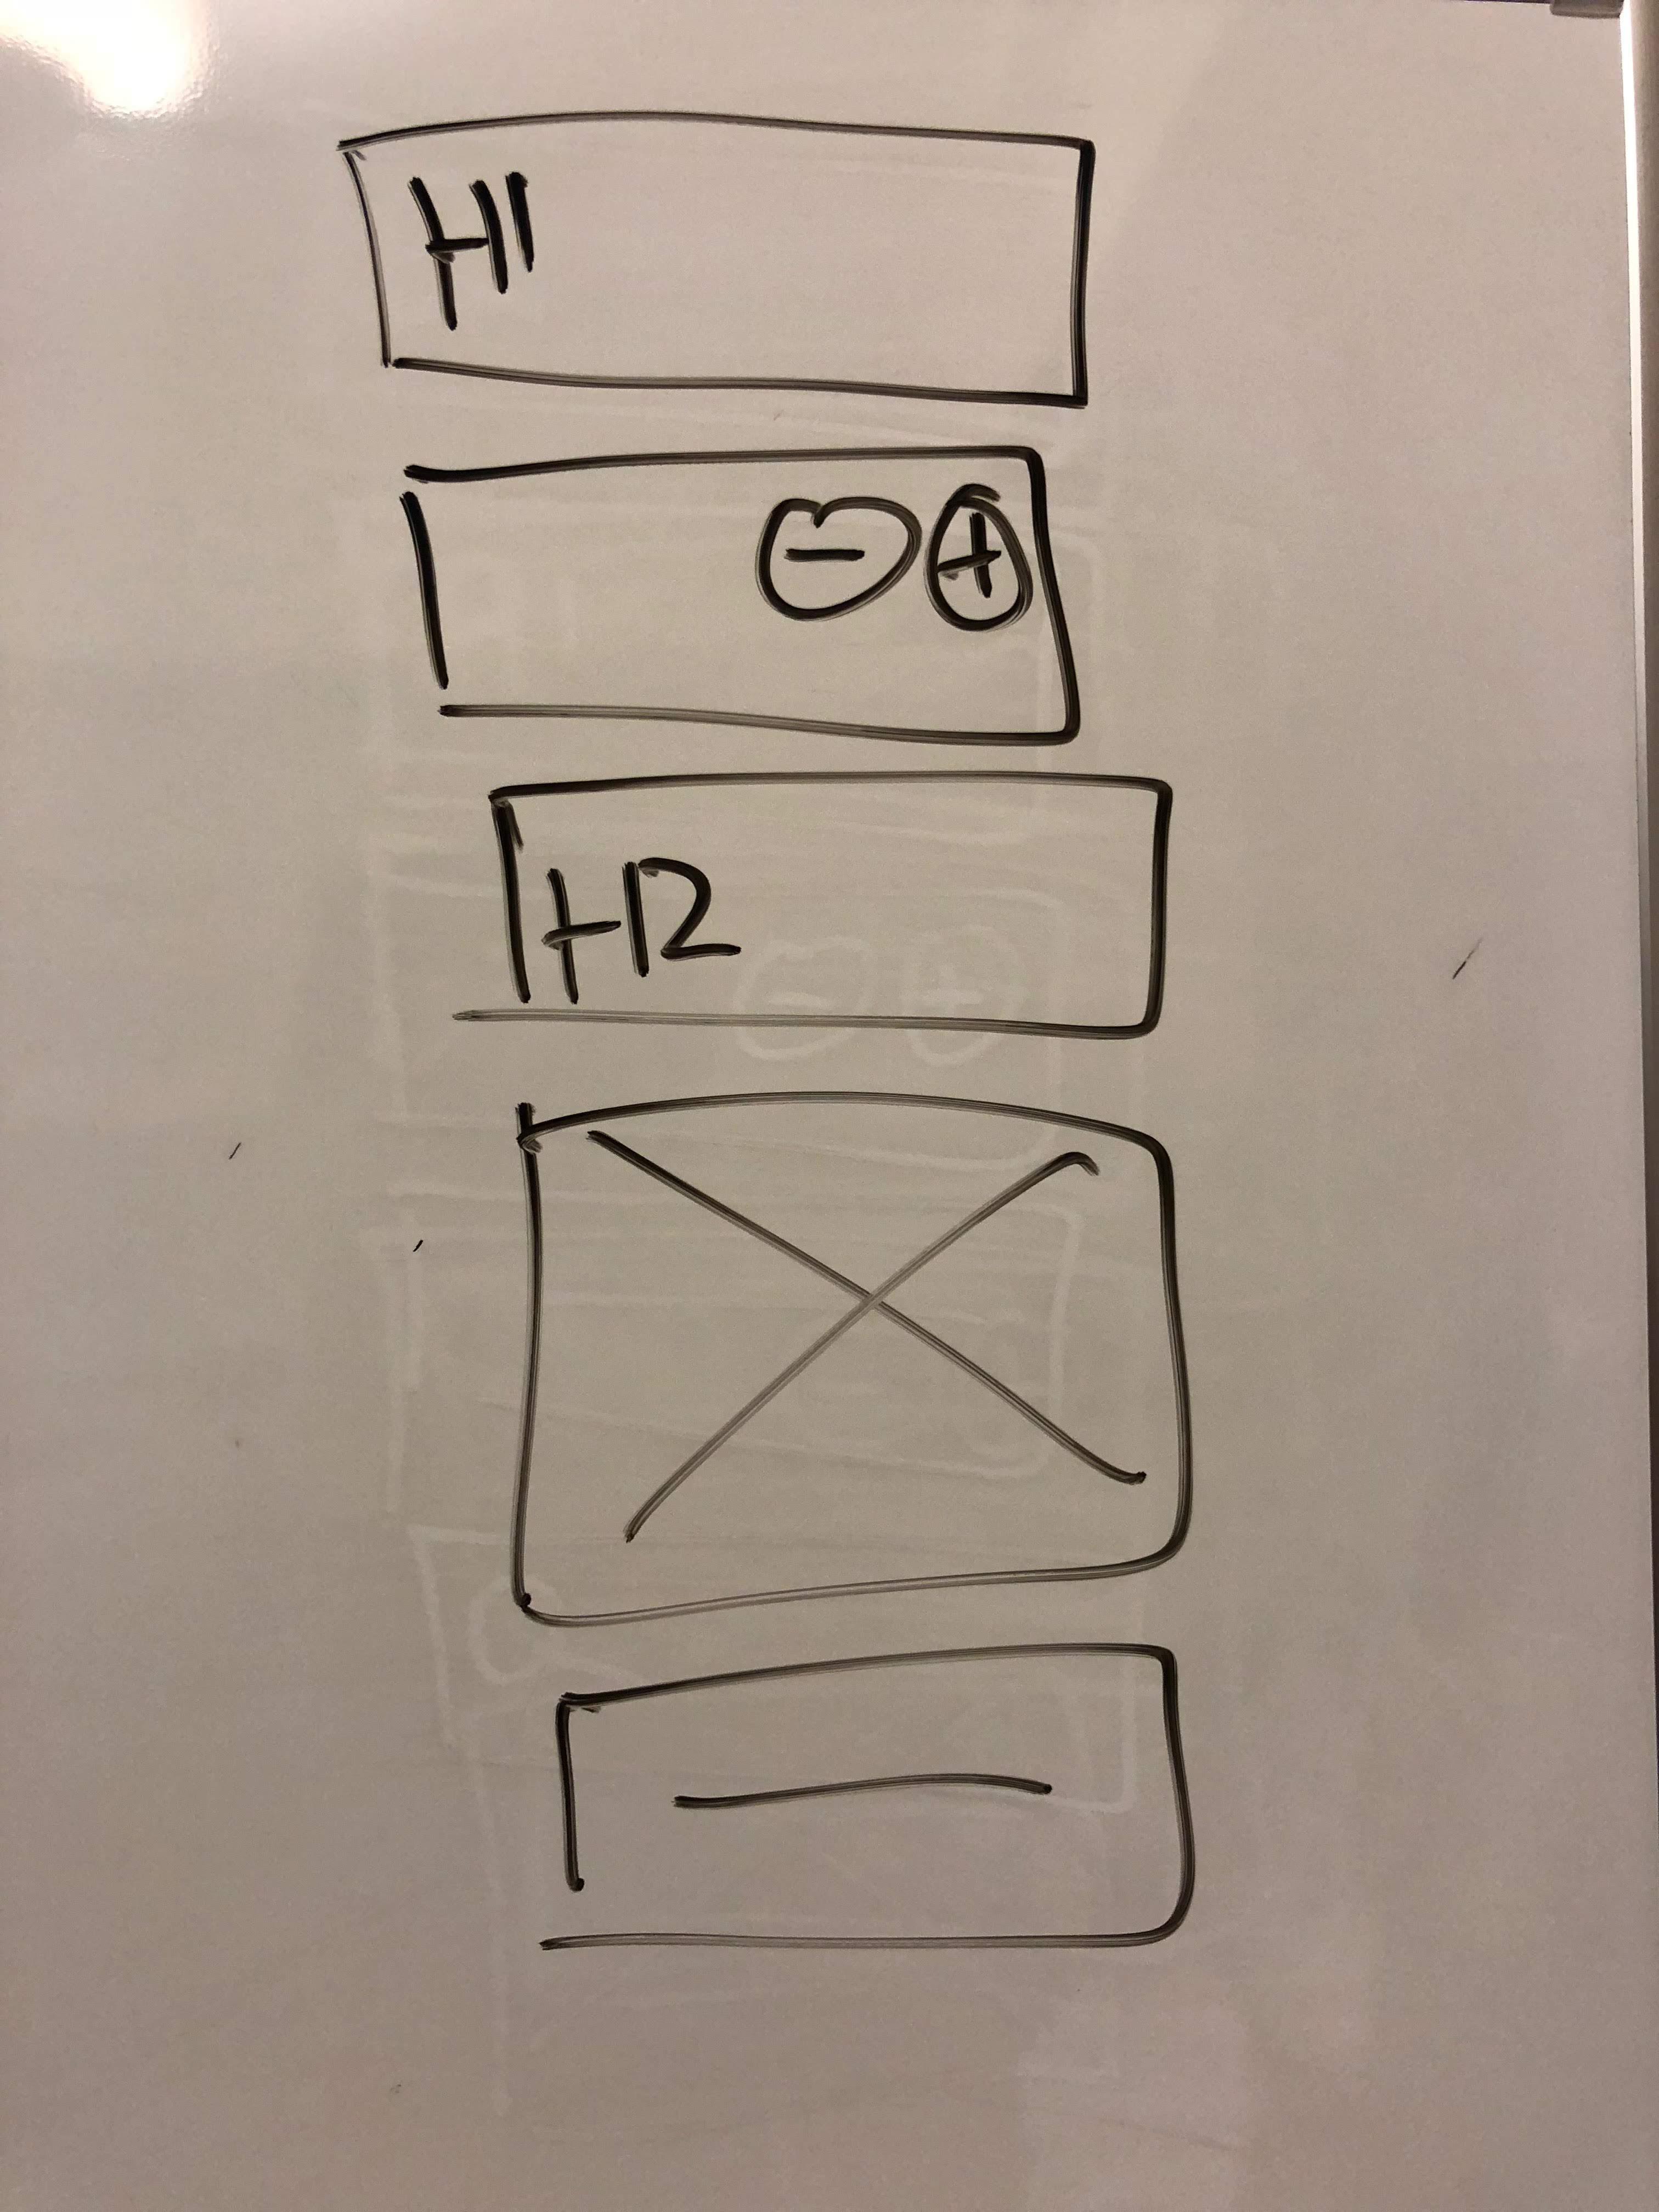 H1
- +
H2